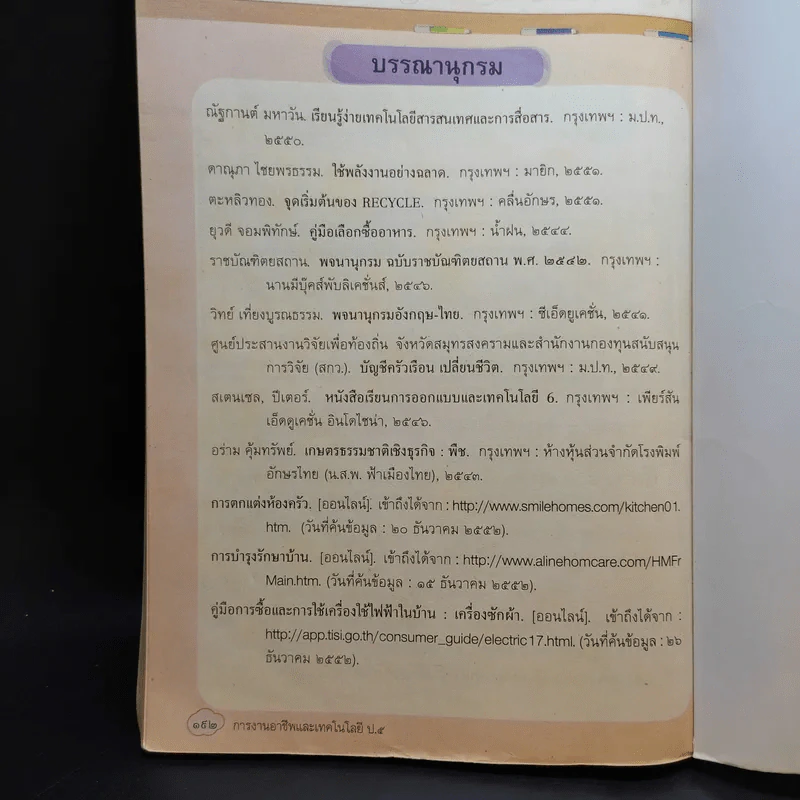 บรรณานุกรม
ณัฐกานต์ มหาวัน. เรียนรู้ง่ายเทคโนโลยีสารสนเทศและการสื่อสาร. กรุงเทพฯ : ม.ป.ท.,
๒๕๕๐.
ดาณุภา ไชยพรธรรม. ใช้พลังงานอย่างฉลาด. กรุงเทพฯ : มายิก, ๒๕๕๑.
ตะหลิวทอง. จุดเริ่มต้นของ RECYCLE. กรุงเทพฯ : คลื่นอักษร, ๒๕๕๑.
ยุวดี จอมพิทักษ์. คู่มือเลือกซื้ออาหาร. กรุงเทพฯ : น้ำฝน, ๒๕๔๔.
ราชบัณฑิตยสถาน. พจนานุกรม ฉบับราชบัณฑิตยสถาน พ.ศ. ๒๕๔๒. กรุงเทพฯ :
นานมีบุ๊คส์พับลิเคชั่นส์, ๒๕๔๖.
วิทย์ เที่ยงบูรณธรรม. พจนานุกรมอังกฤษ-ไทย. กรุงเทพฯ : ซีเอ็ดยูเคชั่น, ๒๕๔๑.
ศูนย์ประสานงานวิจัยเพื่อท้องถิ่น จังหวัดสมุทรสงครามและสำนักงานกองทุนสนับสนุน
การวิจัย (สกว.). บัญชีครัวเรือน เปลี่ยนชีวิต. กรุงเทพฯ : ม.ป.ท., ๒๕๔๙.
สเตนเซล, ปีเตอร์. หนังสือเรียนการออกแบบและเทคโนโลยี 6. กรุงเทพฯ : เพียร์สัน
เอ็ดดูเคชั่น อินโดไชน่า, ๒๕๔๖.
อร่าม คุ้มทรัพย์. เกษตรธรรมชาติเชิงธุรกิจ : พืช. กรุงเทพฯ : ห้างหุ้นส่วนจำกัดโรงพิมพ์
อักษรไทย (น.ส.พ. ฟ้าเมืองไทย), ๒๕๔๓.
การตกแต่งห้องครัว. [ออนไลน์]. เข้าถึงได้จาก : http://www.smilehomes.com/kitchen01.
htm. (วันที่ค้นข้อมูล : ๒๐ ธันวาคม ๒๕๕๒).
การบำรุงรักษาบ้าน. [ออนไลน์]. เข้าถึงได้จาก : http://www.alinehomcare.com/HMFr
Main.htm. (วันที่ค้นข้อมูล : ๑๕ ธันวาคม ๒๕๕๒).
คู่มือการซื้อและการใช้เครื่องใช้ไฟฟ้าในบ้าน : เครื่องซักผ้า. [ออนไลน์]. เข้าถึงได้จาก :
http://app.tisi.go.th/consumer_guide/electric17.html. (วันที่ค้นข้อมูล : ๒๖
ธันวาคม ๒๕๕๒).
๑๕๒ การงานอาชีพและเทคโนโลยี ป.๕